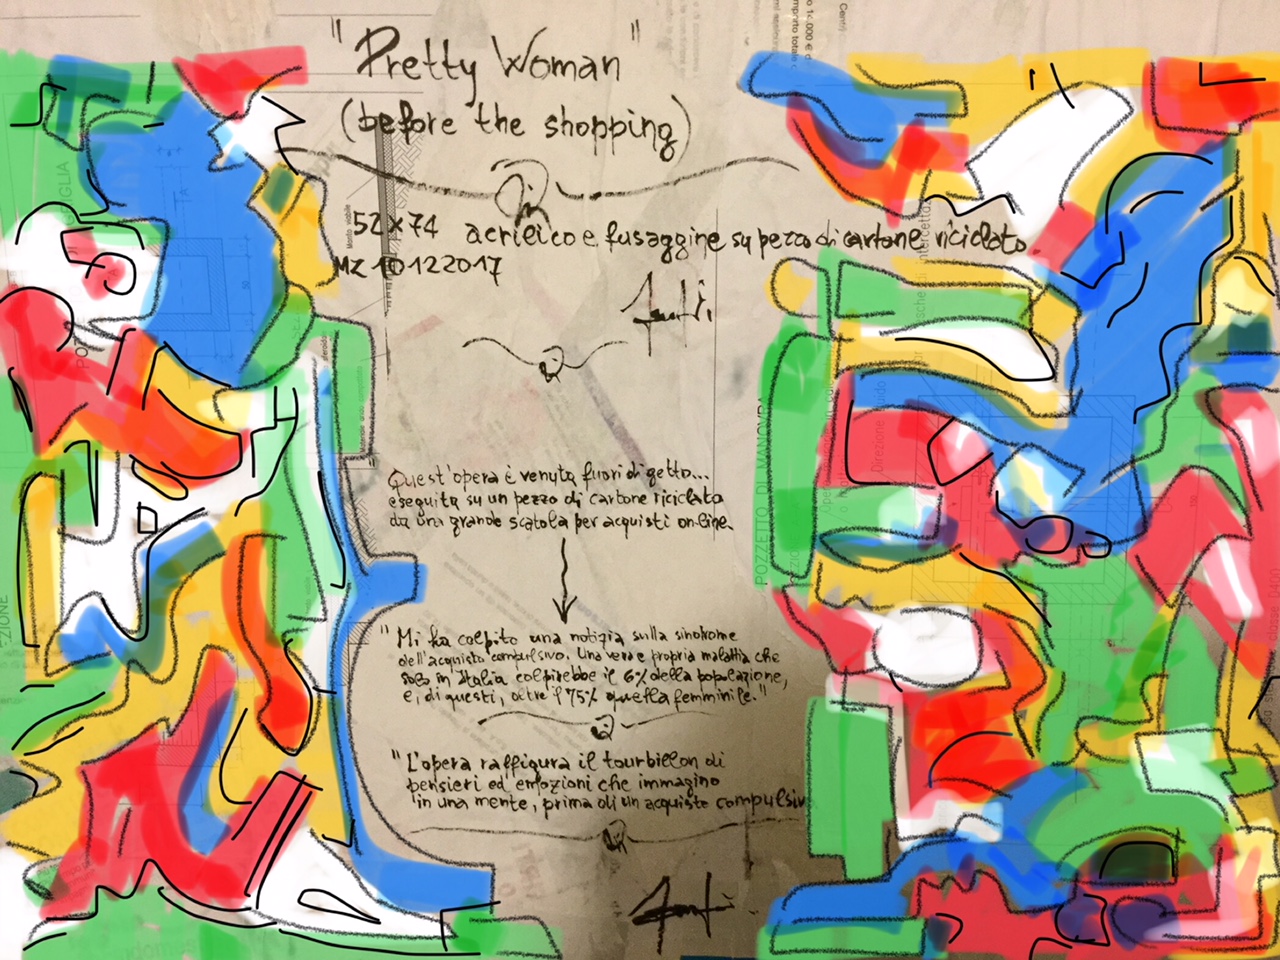 "Pretty Woman"
(before the shopping)
52x74 acrilico e fusaggine su pezzo di cartone riciclato
MZ 10122017
Quest'opera è venuta fuori di getto...
eseguita su un pezzo di cartone riciclato
da una grande scatola per acquisti online.
"Mi ha colpito una notizia sulla sindrome
dell'acquisto compulsivo. Una vera e propria malattia che
solo in Italia colpirebbe il 6% della popolazione,
e, di questi, oltre il 75% quella femminile."
"L'opera raffigura il tourbillon di
pensieri ed emozioni che immagino
in una mente, prima di un acquisto compulsiv
POZZETTO DI MANOVRA
Direzione